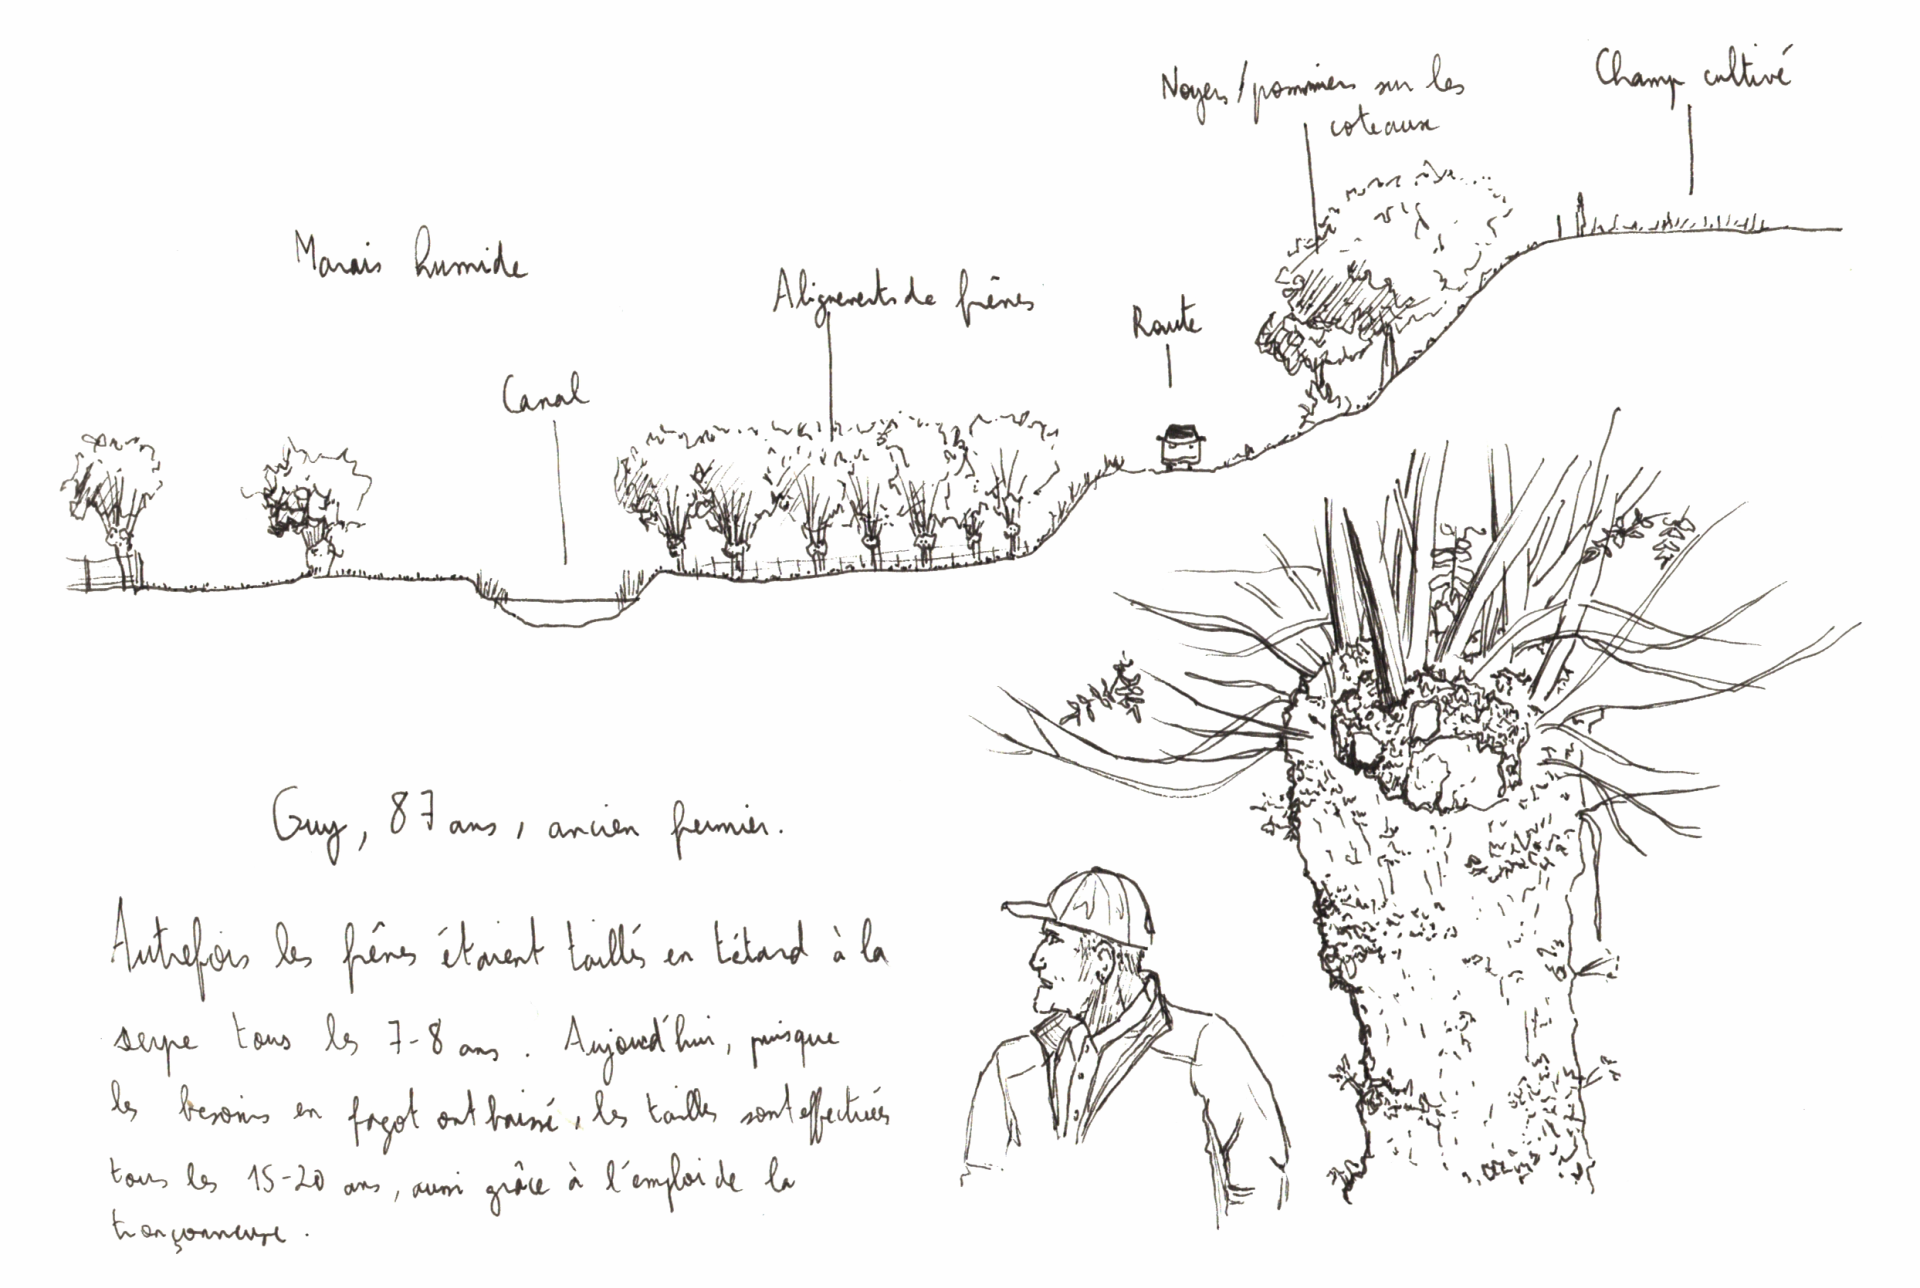 Noyers/pommiers sur les
coteaux
Champ cultivé
Marais humide
Alignements de frênes
Route
Canal
Guy, 87 ans, ancien fermier.
Autrefois les frênes étaient taillés en tétard à la
serpe tous les 7-8 ans. Aujourd'hui, puisque
les besoins en fagot ont baissé, les tailles sont effectuées
tous les 15-20 ans, aussi grâce à l'emploi de la
tronçonneuse.